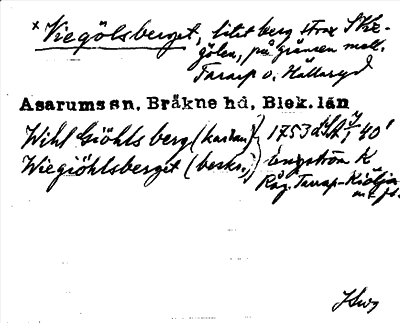 × Viegölsberget, litet berg strax S Vie-
gölen, på gränsen mell.
Tararp o. Hällaryd
Asarums sn, Bräkne hd, Blek. län
Wihl Giöhls berg (kartan) 1753
Wiegiöhlsberget (beskr.,) Engström K
Råg. Tararp-